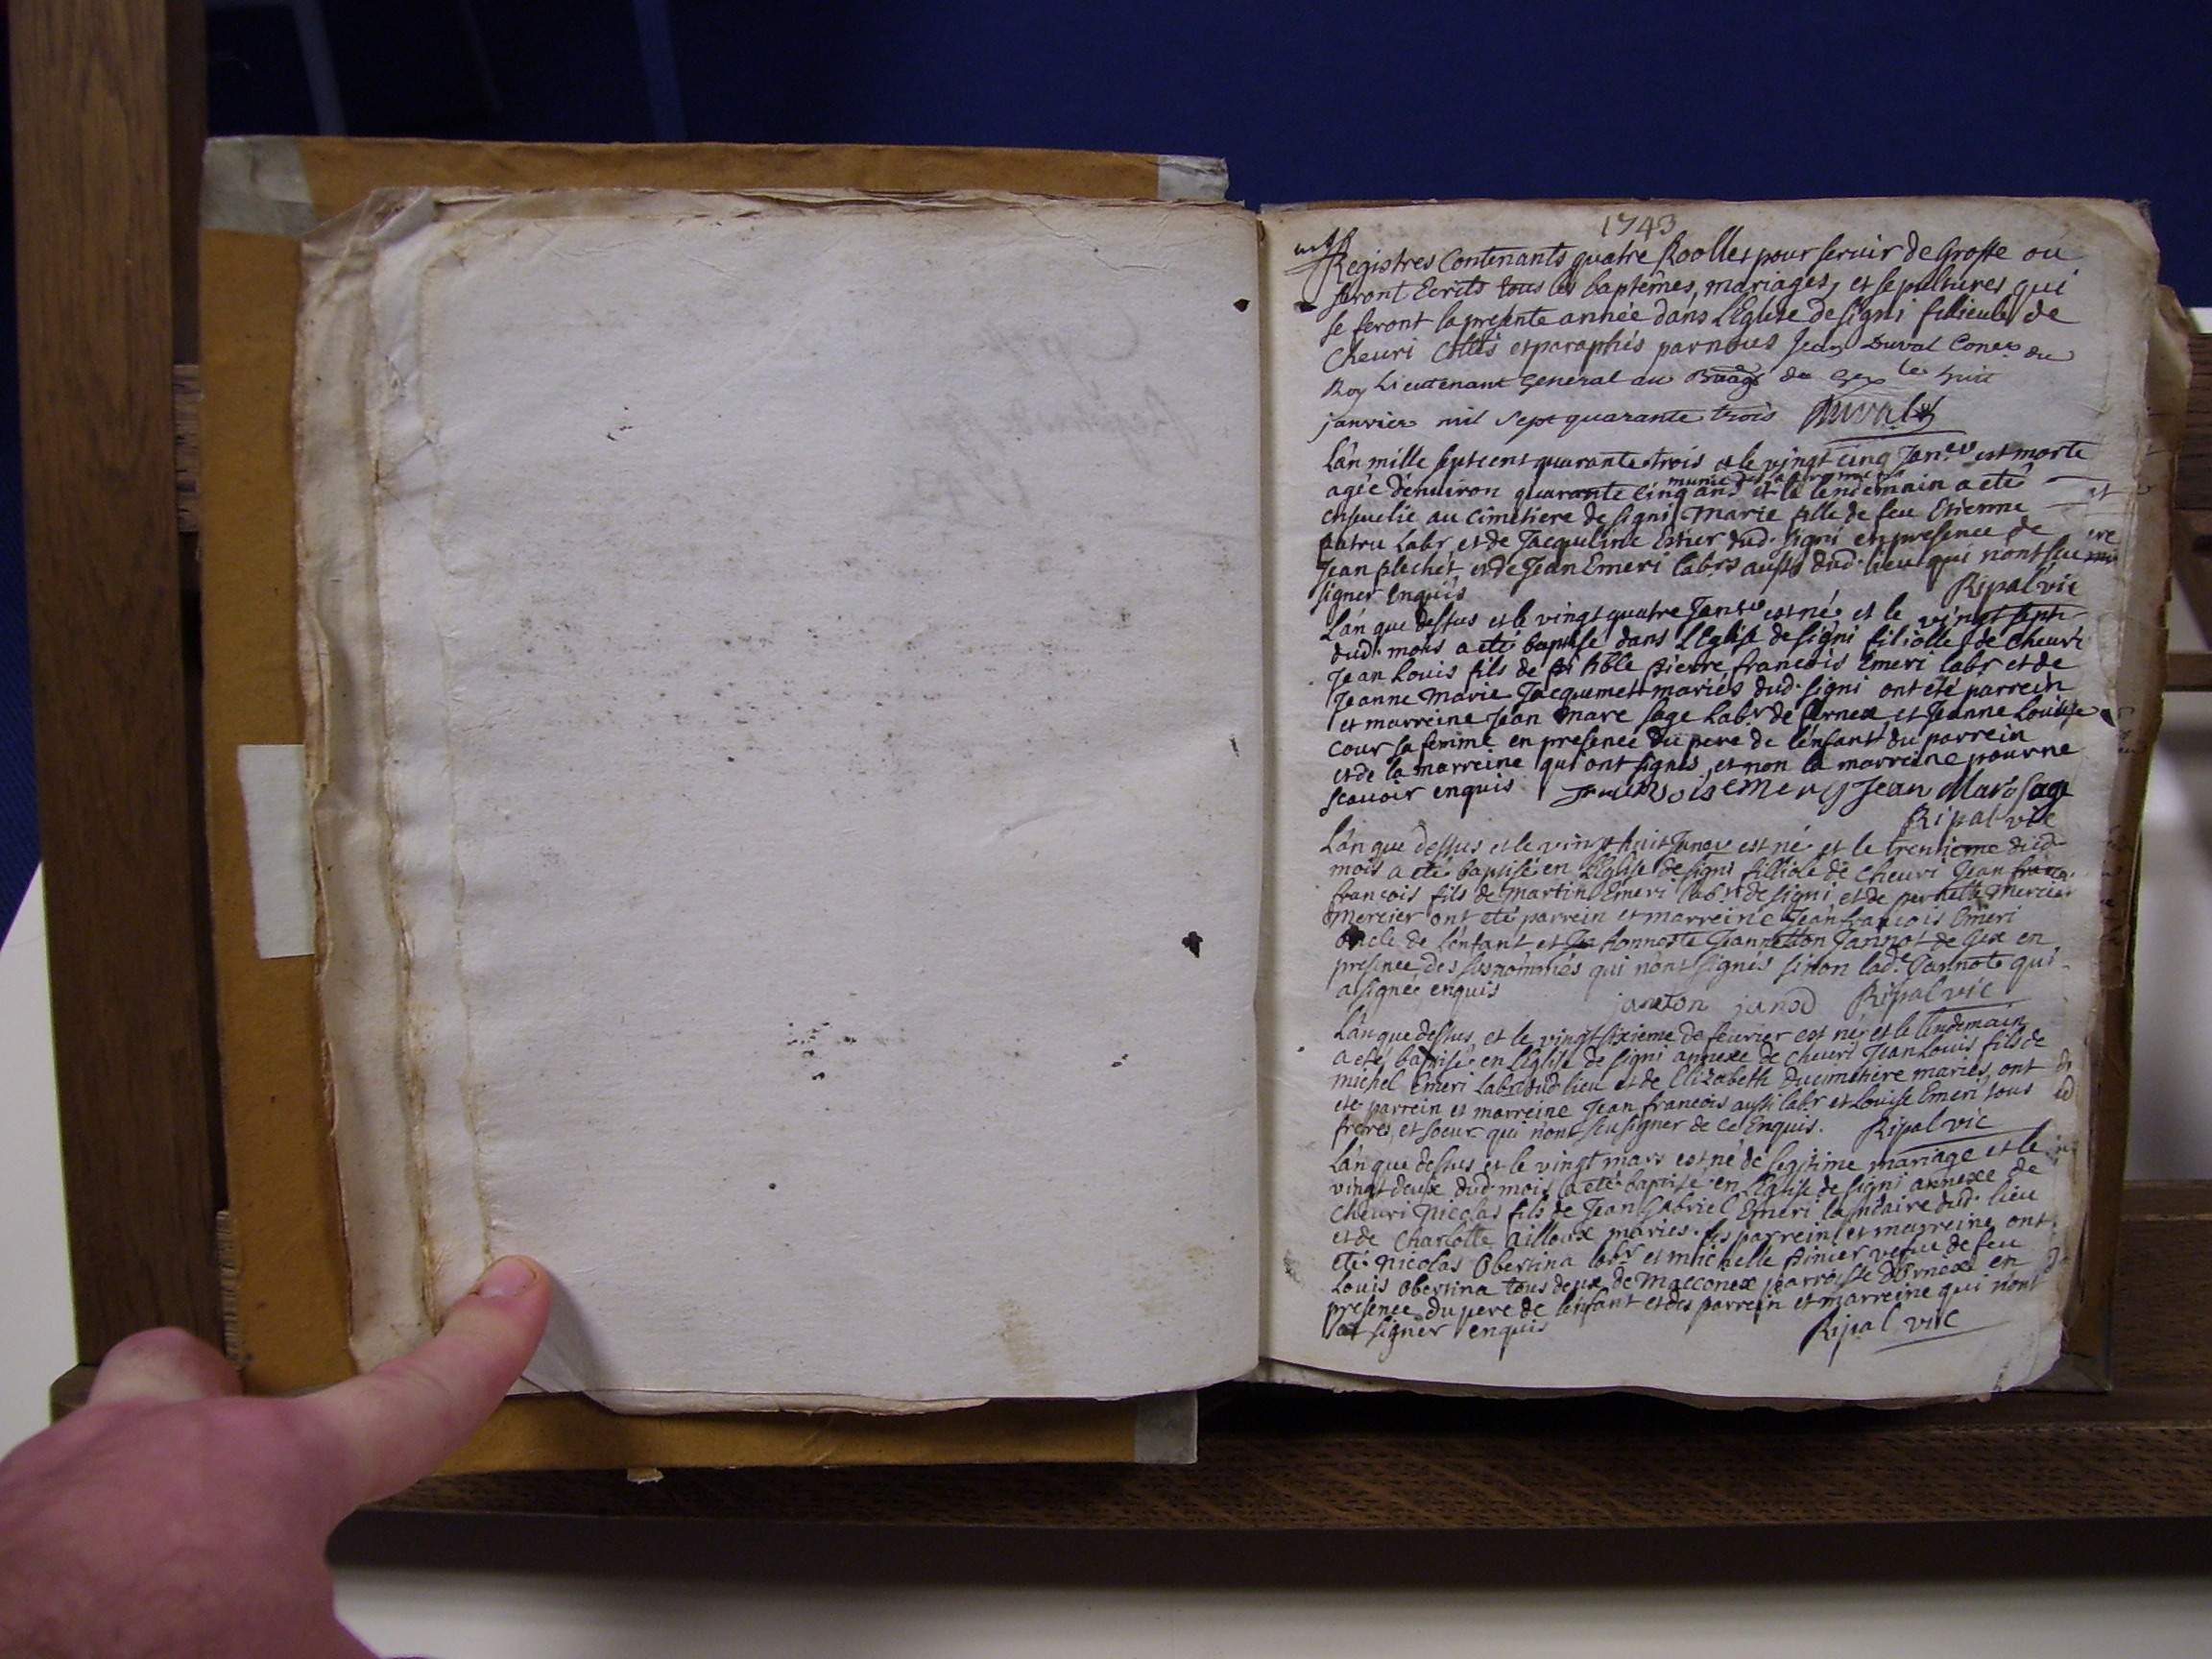 1743
Registres Contenants quatre Roolles pour servir de Grosse ou
seront Ecrits tous les baptêmes, mariages, et sepultures qui
se feront la presente année dans L'Eglise de signi fillieule de
Cheuri Cottés et paraphés par nous Jean Duval Coner du
Roy Lieutenant General au de Gex le huit
janvier mil sept quarante trois Duval
L'an mille sept cent quarante trois et le vingt cinq Janer est morte
munie des sacremens
agée d'enuiron quarante cinq ans et le lendemain a eté
enseuelie au cimetiere de signi Marie fille de feu Etienne
patru Labr et de Jacqueline Estier dud. signi en presence de
Jean Blechet et de Jean Emeri labrs aussi dud. lieu qui n'ont sceu
signer Enquis Ripal vic
L'an que dessus et le vingt quatre Janer est né et le vingt sept
dud. mois a eté baptisé dans L'Eglise de signi filiolle de Cheuri
Jean Louis fils de hble pierre francois Emeri labr et de
Jeanne Marie Jacquemet mariés dud. signi ont été parrein
et marreine Jean Marc sage Labr de fernex et Jeanne Louise
cour sa femme en presence du pere de l'enfant du parrein
et de la marreine qui ont signés, et non la marreine pour ne
scauoir enquis francois emery Jean Marc sage
Ripal vic
L'an que dessus et le vingt huit Janer est né et le trentieme dud
mois a eté baptisé en L'Eglise de signi filliole de Cheuri Jean
francois fils de Martin Emeri labr de signi et de pernette Mercier
Mercier ont eté parrein et marreine Jean francois Emeri
oncle de l'enfant et honneste Jeannetton Jannot de Gex en
presence des susnommés qui n'ont signés sinon lade Jannote qui
a signée enquis janeton janod Ripal vic
L'an que dessus, et le vingt sixieme de feurier est né et le lendemain
a eté baptisé en L'Eglise de signi annexe de cheuri Jean Louis fils de
michel Emeri labr dud. lieu et de Elizabeth ducimetiere mariés, ont
eté parrein et marreine Jean francois aussi labr et Louise Emeri tous
freres, et soeur qui n'ont sceu signer de ce Enquis. Ripal vic
L'an que dessus et le vingt mars est né de legitime mariage et le
vingt deux dud. mois a eté baptisé en L'Eglise de signi annexe de
Cheuri Nicolas fils de Jean Gabriel Emeri dud. lieu
et de Charlotte ailloux mariés. les parrein et marreine ont
eté Nicolas Obertina labr et michelle pinier vefue de feu
Louis Obertina tous deux de Macconex parroisse d'ornex en
presence du pere de l'enfant et des parrein et marreine qui n'ont
signer enquis Ripal vic